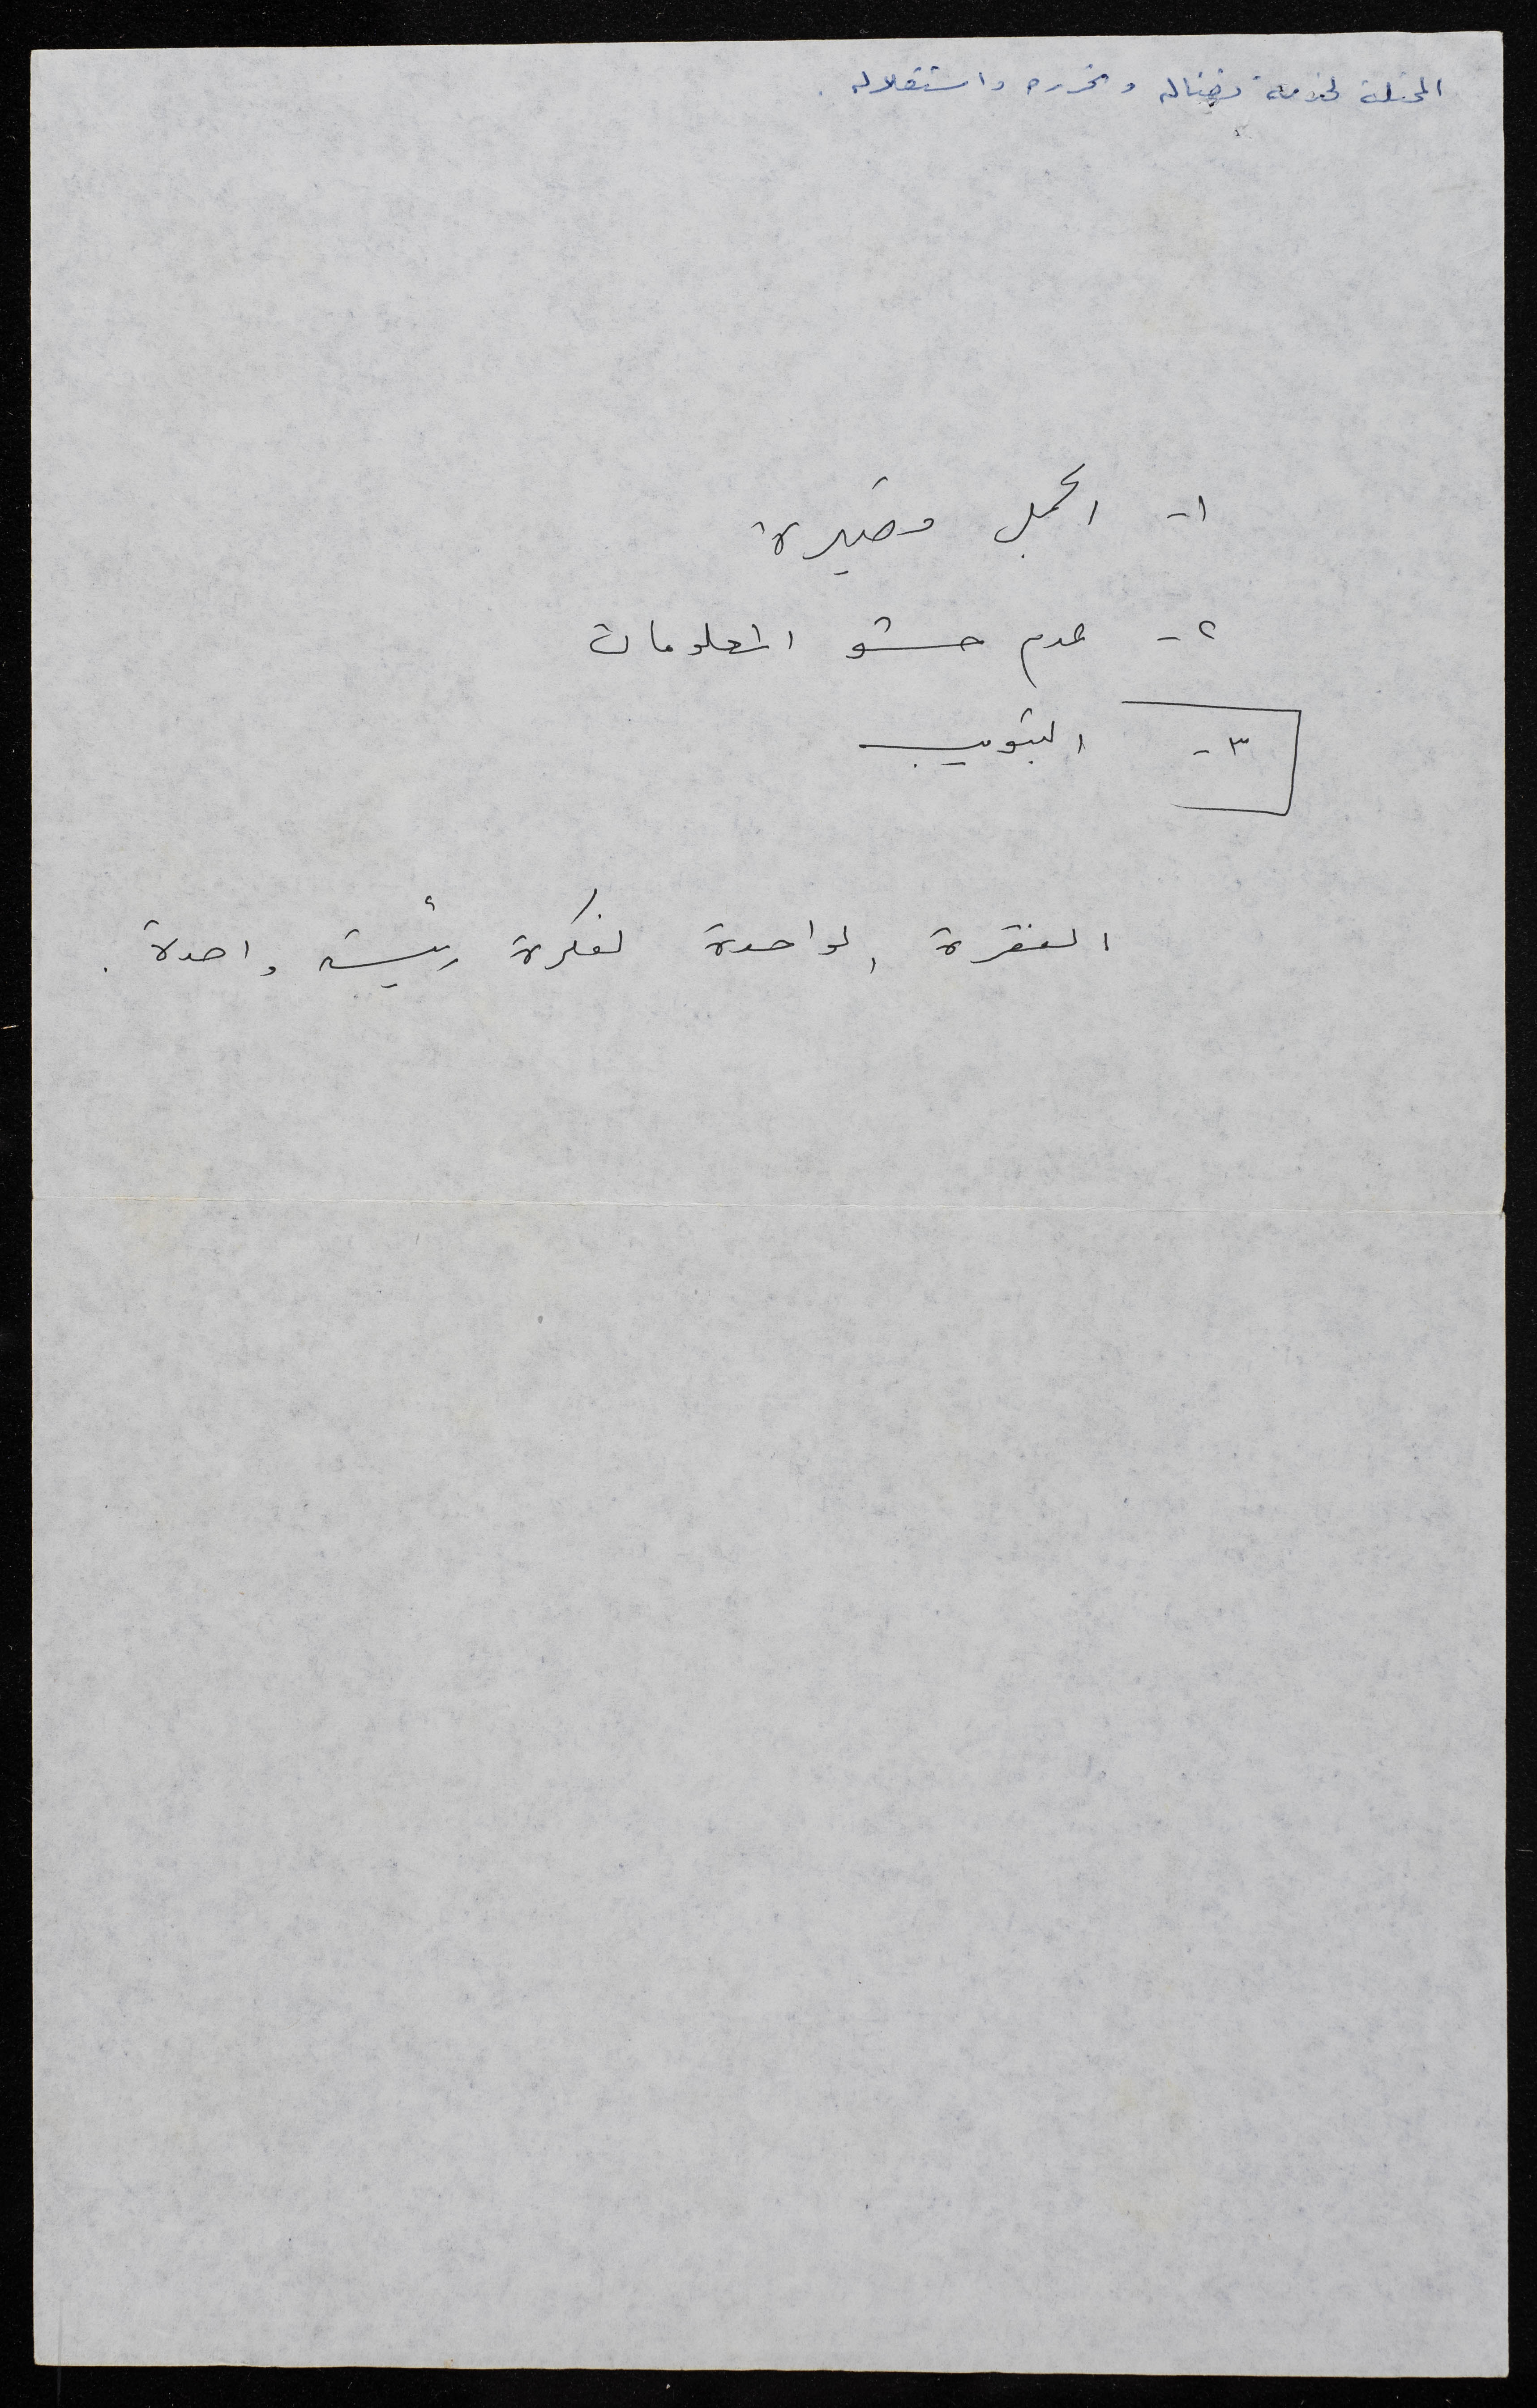 المحتلة لخدمة نضاله وتحرره واستقلاله .
١- الجمل قصيرة
٢- عدم حشو المعلومات
٣- التبويب
الفقرة الواحدة لفكرة رئيسية واحدة .